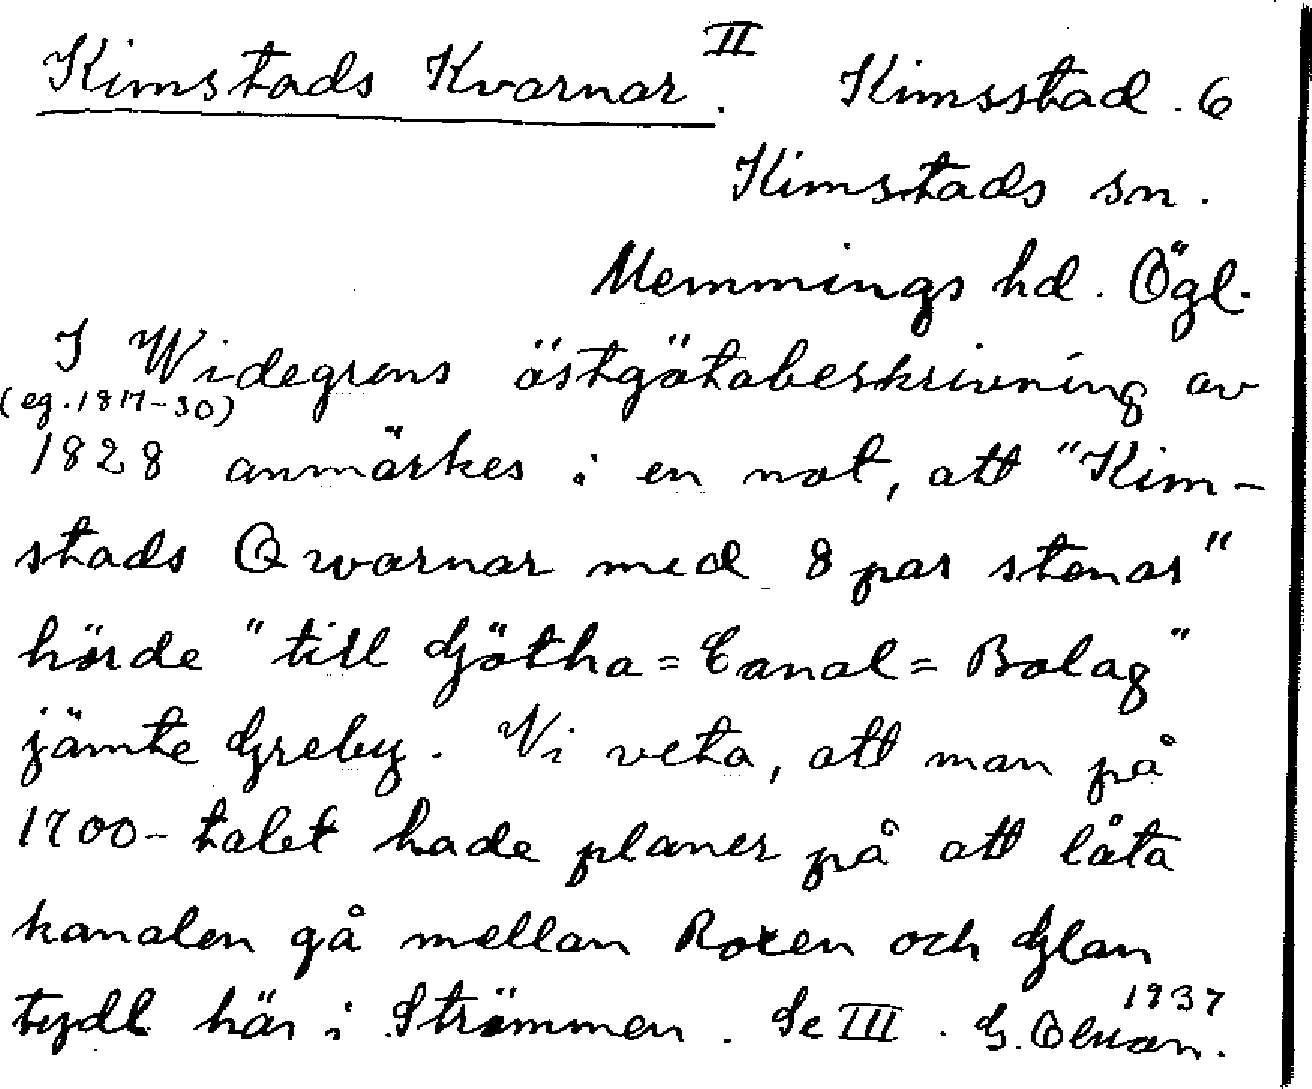 Kimstads Kvarnar II. Kimsstad. 6
Kimstads sn.
Memmings hd. Ögl.
I Widegrens östgötabeskrivning av
(eg. 1817-30)
1828 anmärkes i en not, att "Kim-
stads Qwarnar med 8 par stenar"
hörde "till Götha=Canal=Bolag"
jämte Greby. Vi veta, att man på
1700-talet hade planer på att låta
kanalen gå mellan Roxen och Glan
tydl här i Strömmen. Se III. 1937
G.